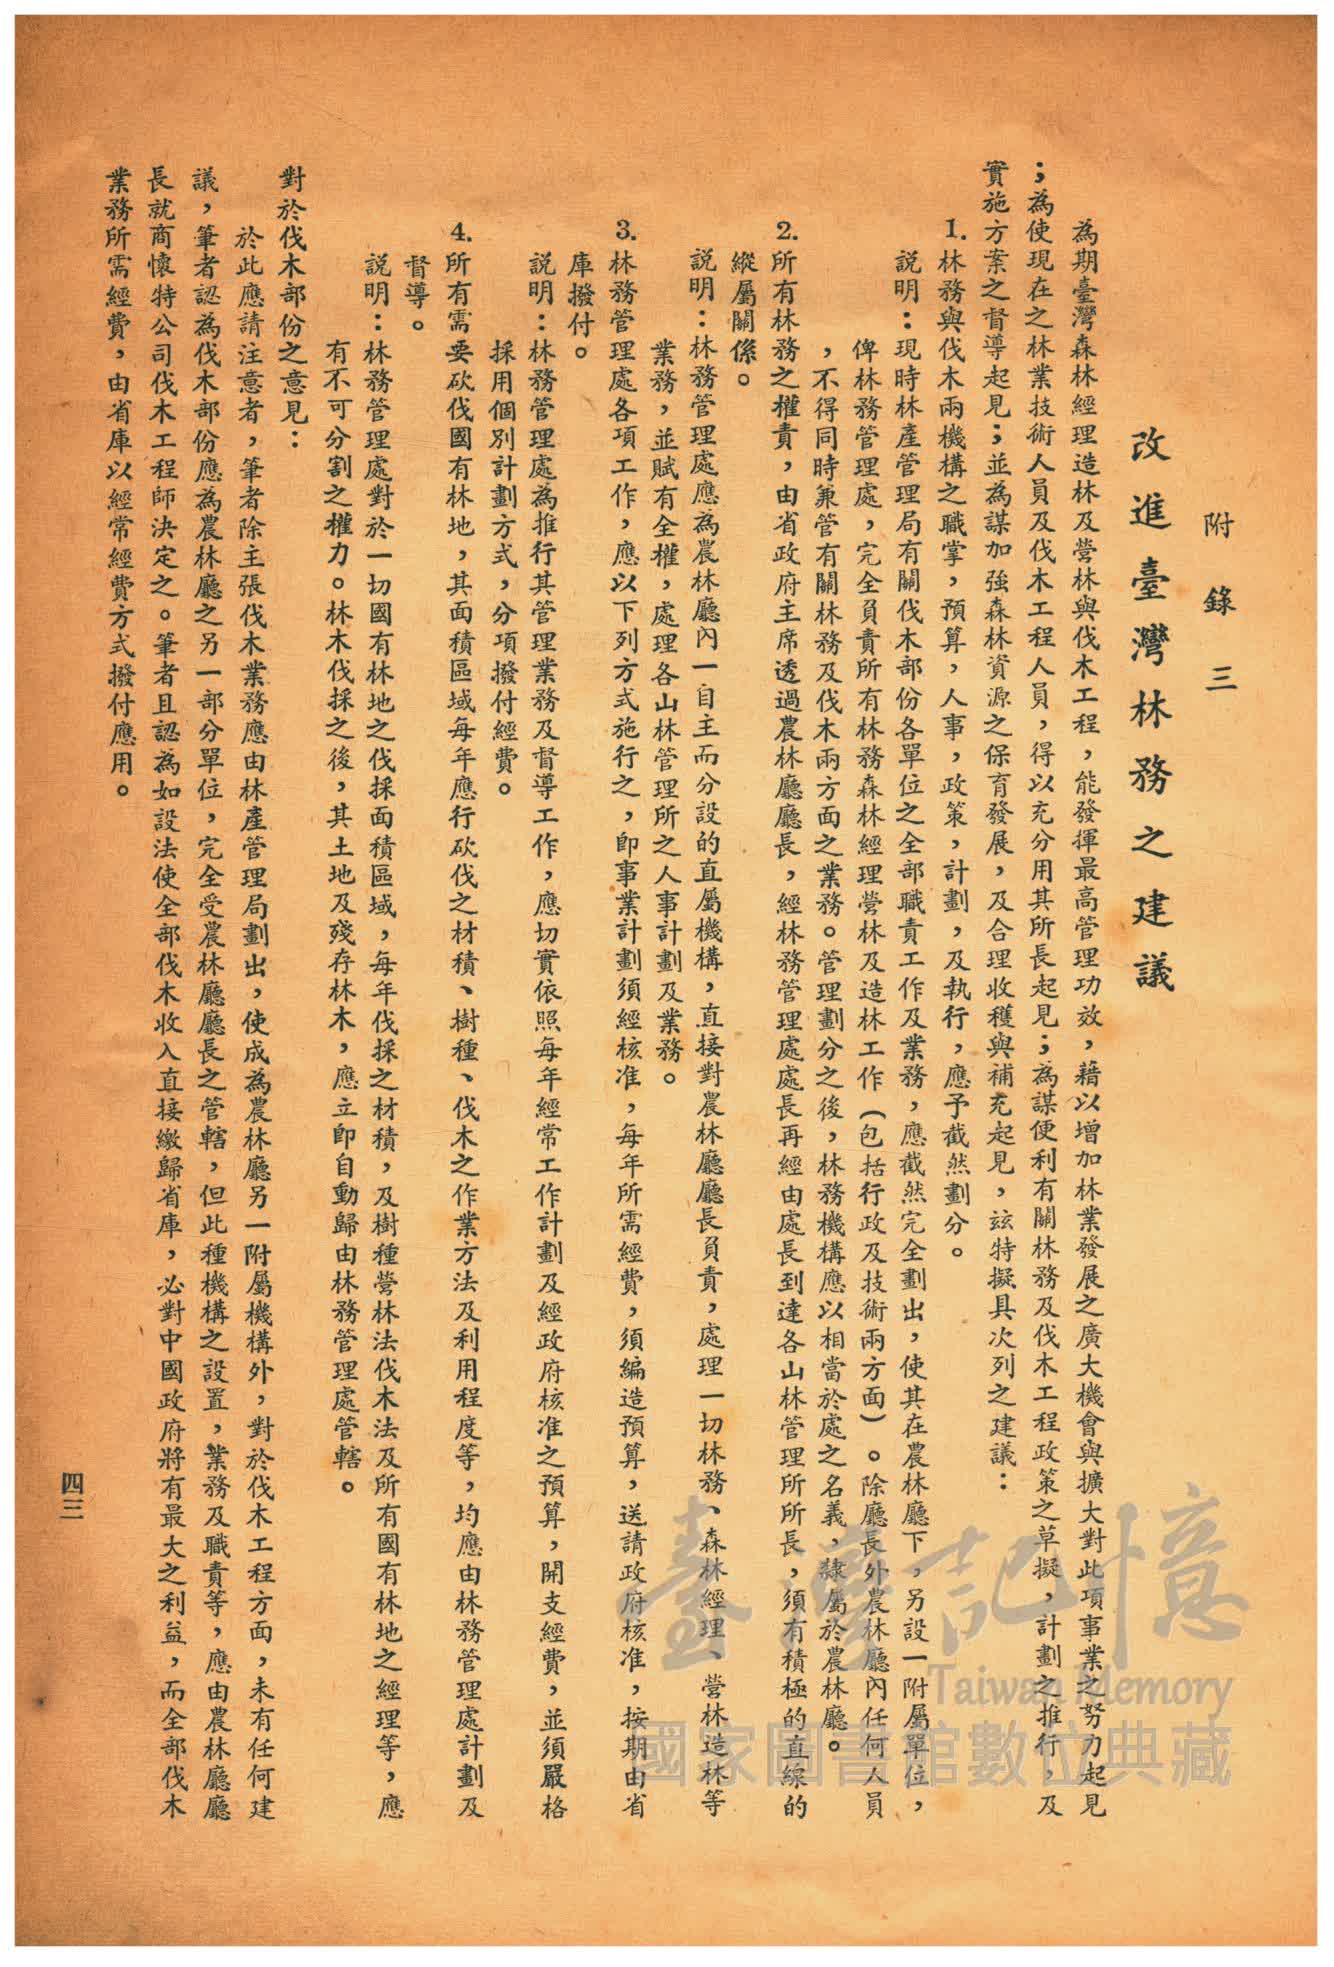 附錄三
改進臺灣林務之建議
為期臺灣森林經理造林及營林與伐木工程，能發揮最高管理功效，藉以增加林業發展之廣大機會與擴大對此項事業之努力起見
；為使現在之林業技術人員及伐木工程人員，得以充分用其所長起見；為謀便利有關林務及伐木工程政策之草擬，計劃之推行，及
實施方案之督導起見；並為謀加強森林資源之保育發展，及合理收穫與補充起見，玆特擬具次列之建議：
1.林務與伐木兩機構之職掌，預算，人事，政策，計劃，及執行，應予截然劃分。
說明：現時林產管理局有關伐木部份各單位之全部職責工作及業務，應截然完全劃出，使其在農林廳下，另設一附屬單位，
俾林務管理處，完全負責所有林務森林經理營林及造林工作（包括行政及技術兩方面）。除廳長外農林廳內任何人員
，不得同時兼管有關林務及伐木兩方面之業務。管理劃分之後，林務機構應以相當於處之名義，隸屬於農林廳。
2.所有林務之權責，由省政府主席透過農林廳廳長，經林務管理處處長再經由處長到達各山林管理所所長，須有積極的直線的
縱屬關係。
說明：林務管理處應為農林廳內一自主而分設的直屬機構，直接對農林廳廳長負責，處理一切林務、森林經理、營林造林等
業務，並賦有全權，處理各山林管理所之人事計劃及業務。
3.林務管理處各項工作，應以下列方式施行之，卽事業計劃須經核准，每年所需經費，須編造預算，送請政府核准，按期由省
庫撥付。
說明：林務管理處為推行其管理業務及督導工作，應切實依照每年經常工作計劃及經政府核准之預算，開支經費，並須嚴格
採用個別計劃方式，分項撥付經費。
4.所有需要砍伐國有林地，其面積區域每年應行砍伐之材積、樹種、伐木之作業方法及利用程度等，均應由林務管理處計劃及
督導。
說明：林務管理處對於一切國有林地之伐採面積區域，每年伐採之材積，及樹種營林法伐木法及所有國有林地之經理等，應
有不可分割之權力。林木伐採之後，其土地及殘存林木，應立卽自動歸由林務管理處管轄。
對於伐木部份之意見：
於此應請注意者，筆者除主張伐木業務應由林產管理局劃出，使成為農林廳另一附屬機構外，對於伐木工程方面，未有任何建
議，筆者認為伐木部份應為農林廳之另一部分單位，完全受農林廳廳長之管轄，但此種機構之設置，業務及職責等，應由農林廳廳
長就商懷特公司伐木工程師決定之。筆者且認為如設法使全部伐木收入直接繳歸省庫，必對中國政府將有最大之利益，而全部伐木
業務所需經費，由省庫以經常經費方式撥付應用。
四三
臺灣記憶
Taiwan Memory
國家圖書館數位典藏